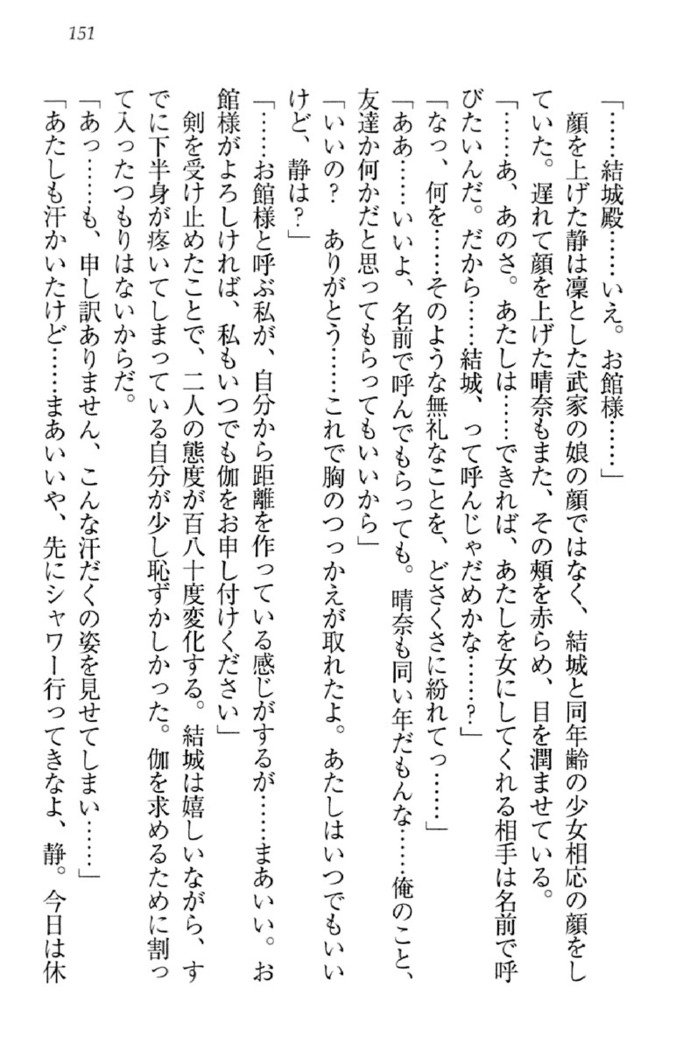 151
「……結城殿……いえ。お館様……」
　顔を上げた静は凜とした武家の娘の顔ではなく、結城と同年齢の少女相応の顔をし
ていた。遅れて顔を上げた晴奈もまた、その頰を赤らめ、目を潤ませている。
「……あ、あのさ。あたしは……できれば、あたしを女にしてくれる相手は名前で呼
びたいんだ。だから……結城、って呼んじゃだめかな……？」
「なっ、何を……そのような無礼なことを、どさくさに紛れてっ……」
「ああ……いいよ、名前で呼んでもらっても。晴奈も同い年だもんな……俺のこと、
友達か何かだと思ってもらってもいいから」
「いいの？　ありがとう……これで胸のつっかえが取れたよ。あたしはいつでもいい
けど、静は？」
「……お館様と呼ぶ私が、自分から距離を作っている感じがするが……まあいい。お
館様がよろしければ、私もいつでも伽をお申し付けください」
　剣を受け止めたことで、二人の態度が百八十度変化する。結城は嬉しいながら、す
でに下半身が疼いてしまっている自分が少し恥ずかしかった。伽を求めるために割っ
て入ったつもりはないからだ。
「あっ……も、申し訳ありません、こんな汗だくの姿を見せてしまい……」
「あたしも汗かいたけど……まあいいや、先にシャワー行ってきなよ、静。今日は休